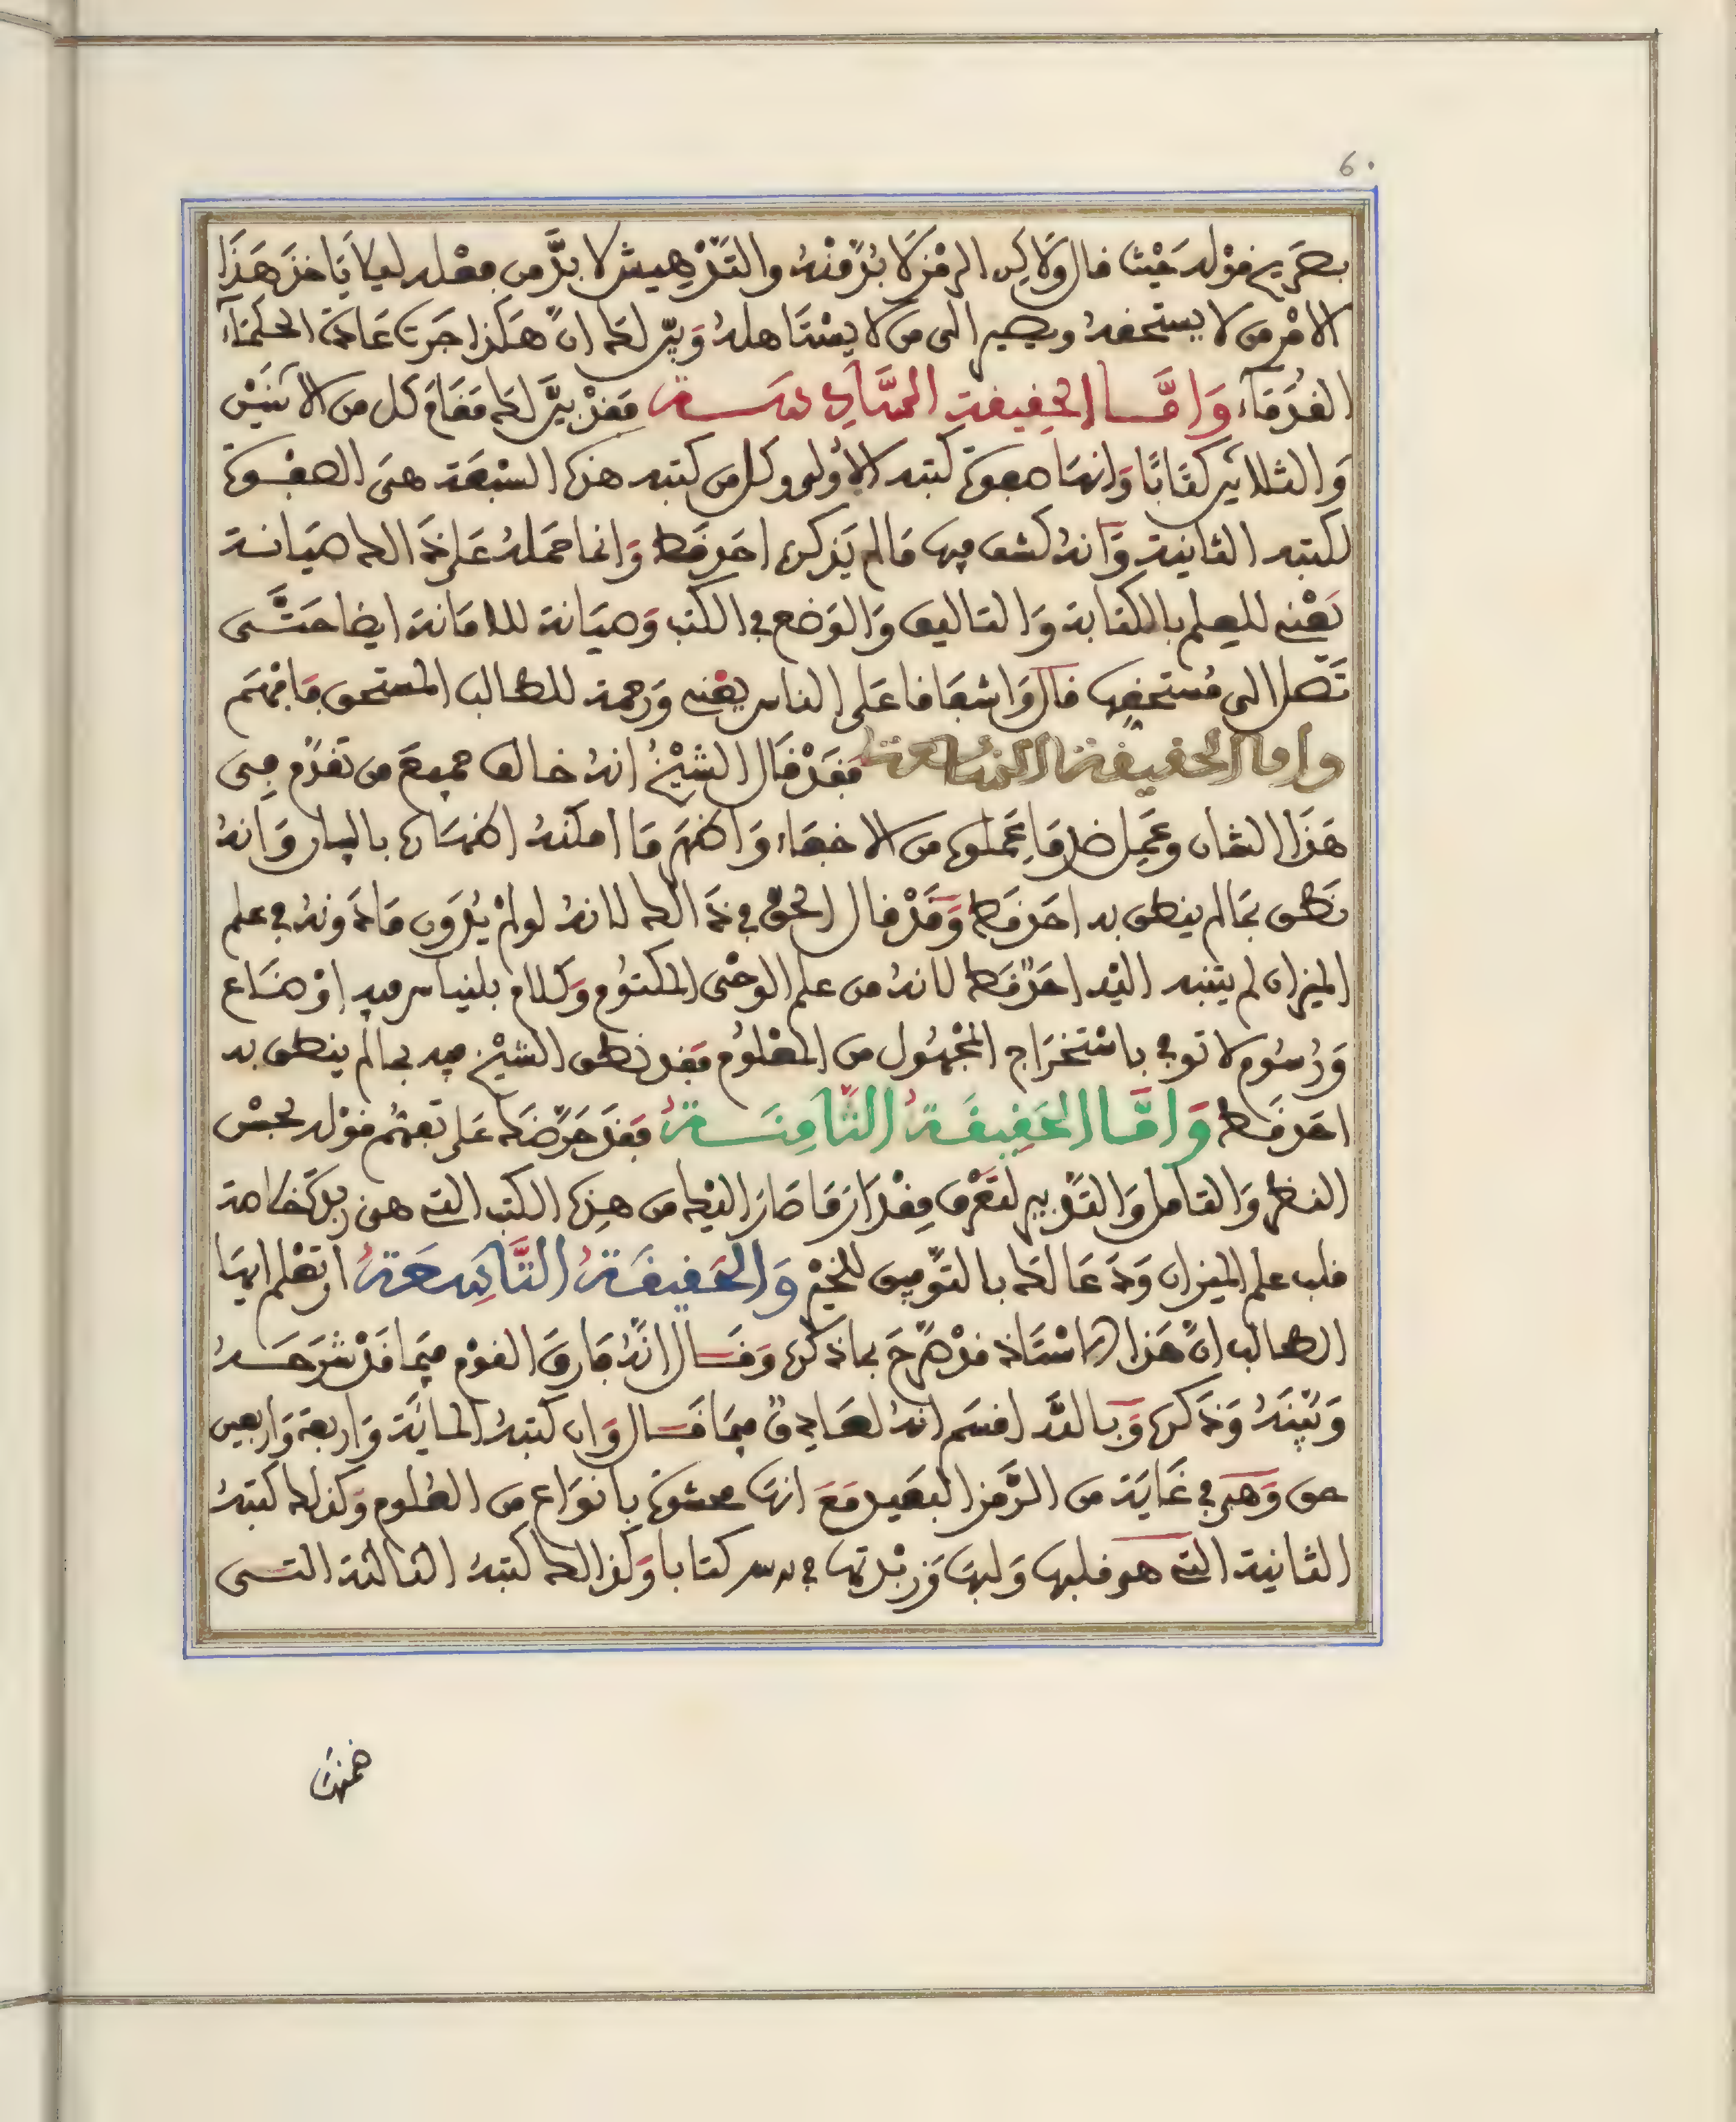 6.
بصريح قوله حيث قال ولاكن الرمز لا بد منه والتدهيش لا بد من فعله ليلا ياخذ هذا
الامر من لا يستحقه ويصير الى من لا يستاهله وبيّن لك ان هكذا جرت عادة الحكماء
القدماء وامّا الحقيقة السّادسة فقد بيّن لك مقام كل من الاثنين
والثلاثين كتابًا وانها صفوة كتبه الاولى وكل من كتبه هذه السبعة هي الصفوة
لكتبه الثانية وانه كشف فيها ما لم يذكره احد قط وانما حمله على ذالك صيانة
يعني للعلم بالكتابة والتاليف والوضع في الكتب وصيانة للامانة ايضا حتّى
تصل الى مستحقها قال واشفاقا على الناس يعني ورحمة للطالب المستحق فافهم
واما الحقيقة السابعة فقد قال الشيخ انه خالف جميع من تقدم في
هذا الشان وعمل ضد ما عملوه من الاخفاء واظهر ما امكنه اظهاره بالبيان وانه
نطق بما لم ينطق به احد قط وقد قال الحق في ذالك لانه لو لم يدون ما دونه في علم
الميزان لم يتنبه اليه احد قط لانه من علم الوحي المكتوم وكلام بلنياس فيه اوضاع
ورسوم لا توفي باستخراج المجهول من المعلوم فقد نطق الشيخ فيه بما لم ينطق به
احد قط وامّا الحقيقة الثّامنة فقد حرّضك على تفهّم قوله بحسن
النظر والتامل والتدبير لتعرف مقدار ما صار اليك من هذه الكتب التي هي زبد وخلاصة
قلب علم الميزان ودعا لك بالتّوفيق للخير والحقيقة التّاسعة ان تعلم ايها
الطالب ان هذا الاستاذ قد صرّح بما ذكره وقال انه فارق القوم فيما قد شرحه
وبيّنه وذكره وبالله اقسم انه لصادق فيما قال وان كتبه المائة واربعة واربعين
حق وهي في غاية من الرّمز البعيد مع انها محشوة بانواع من العلوم وكذلك كتبه
الثانية التي هو قلبها ولبها وزبدتها في كتابا وكذالك كتبه الثالثة التي
ضمنها